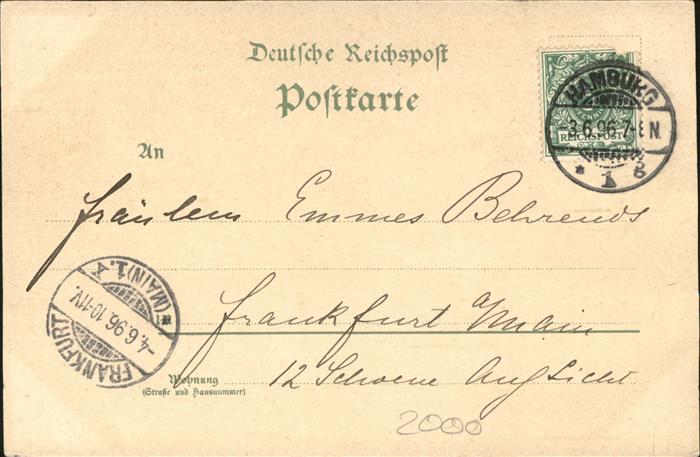 Deutsche Reichspost
Postkarte
HAMBURG
-3.6.96.7-8 N.
* 1 g
REICHSPOST
An
Fräulein Emmes Behrends
Frankfurt a/Main
FRANKFURT (MAIN) 1.
-4.6.96.10-11V.
Wohnung
(Straße und Hausnummer)
12 Schoene Aussicht
2000